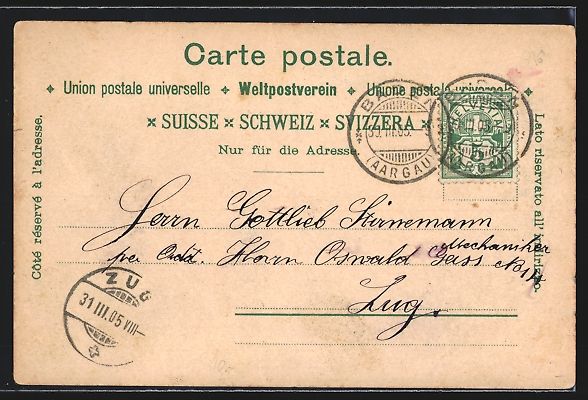 Carte postale.
Union postale universelle Weltpostverein Unione postale universale
SUISSE × SCHWEIZ × SVIZZERA ×
Nur für die Adresse.
Côté réservé à l'adresse.
Lato riservato all' indirizzo.
BADEN
(AARGAU)
5
Herrn Gottlieb Stirnemann
Mechaniker
per Adr. Herrn Oswald Geiss
Zug.
ZUG
31 III.05 VIII–